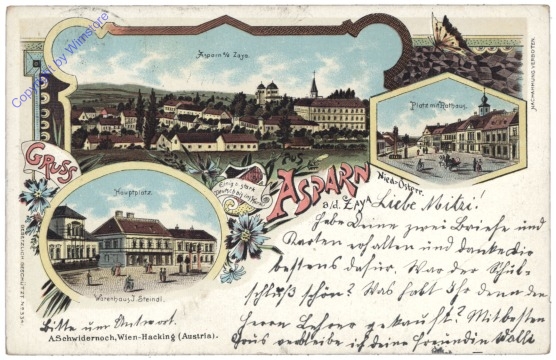 Copyright by Winstore
Asparn a/d Zaya.
Platz mit Rathaus.
NACHAHMUNG VERBOTEN
GRUSS
aus
ASPARN
a/d. ZAYA
Nied. Österr.
Hauptplatz.
Warenhaus J. Steindl.
GESETZLICH GESCHÜTZT
Liebe Mitzi!
Habe Deine zwei Briefe und
Karten erhalten und danke Dir
bestens dafür. War der Schul-
schluß schön? Was habt Ihr denn dem
Herrn Lehrer gekauft? Mit besten
verbleibe ich deine Freundin
Bitte um Antwort.
A. Schwidernoch, Wien-Hacking (Austria).